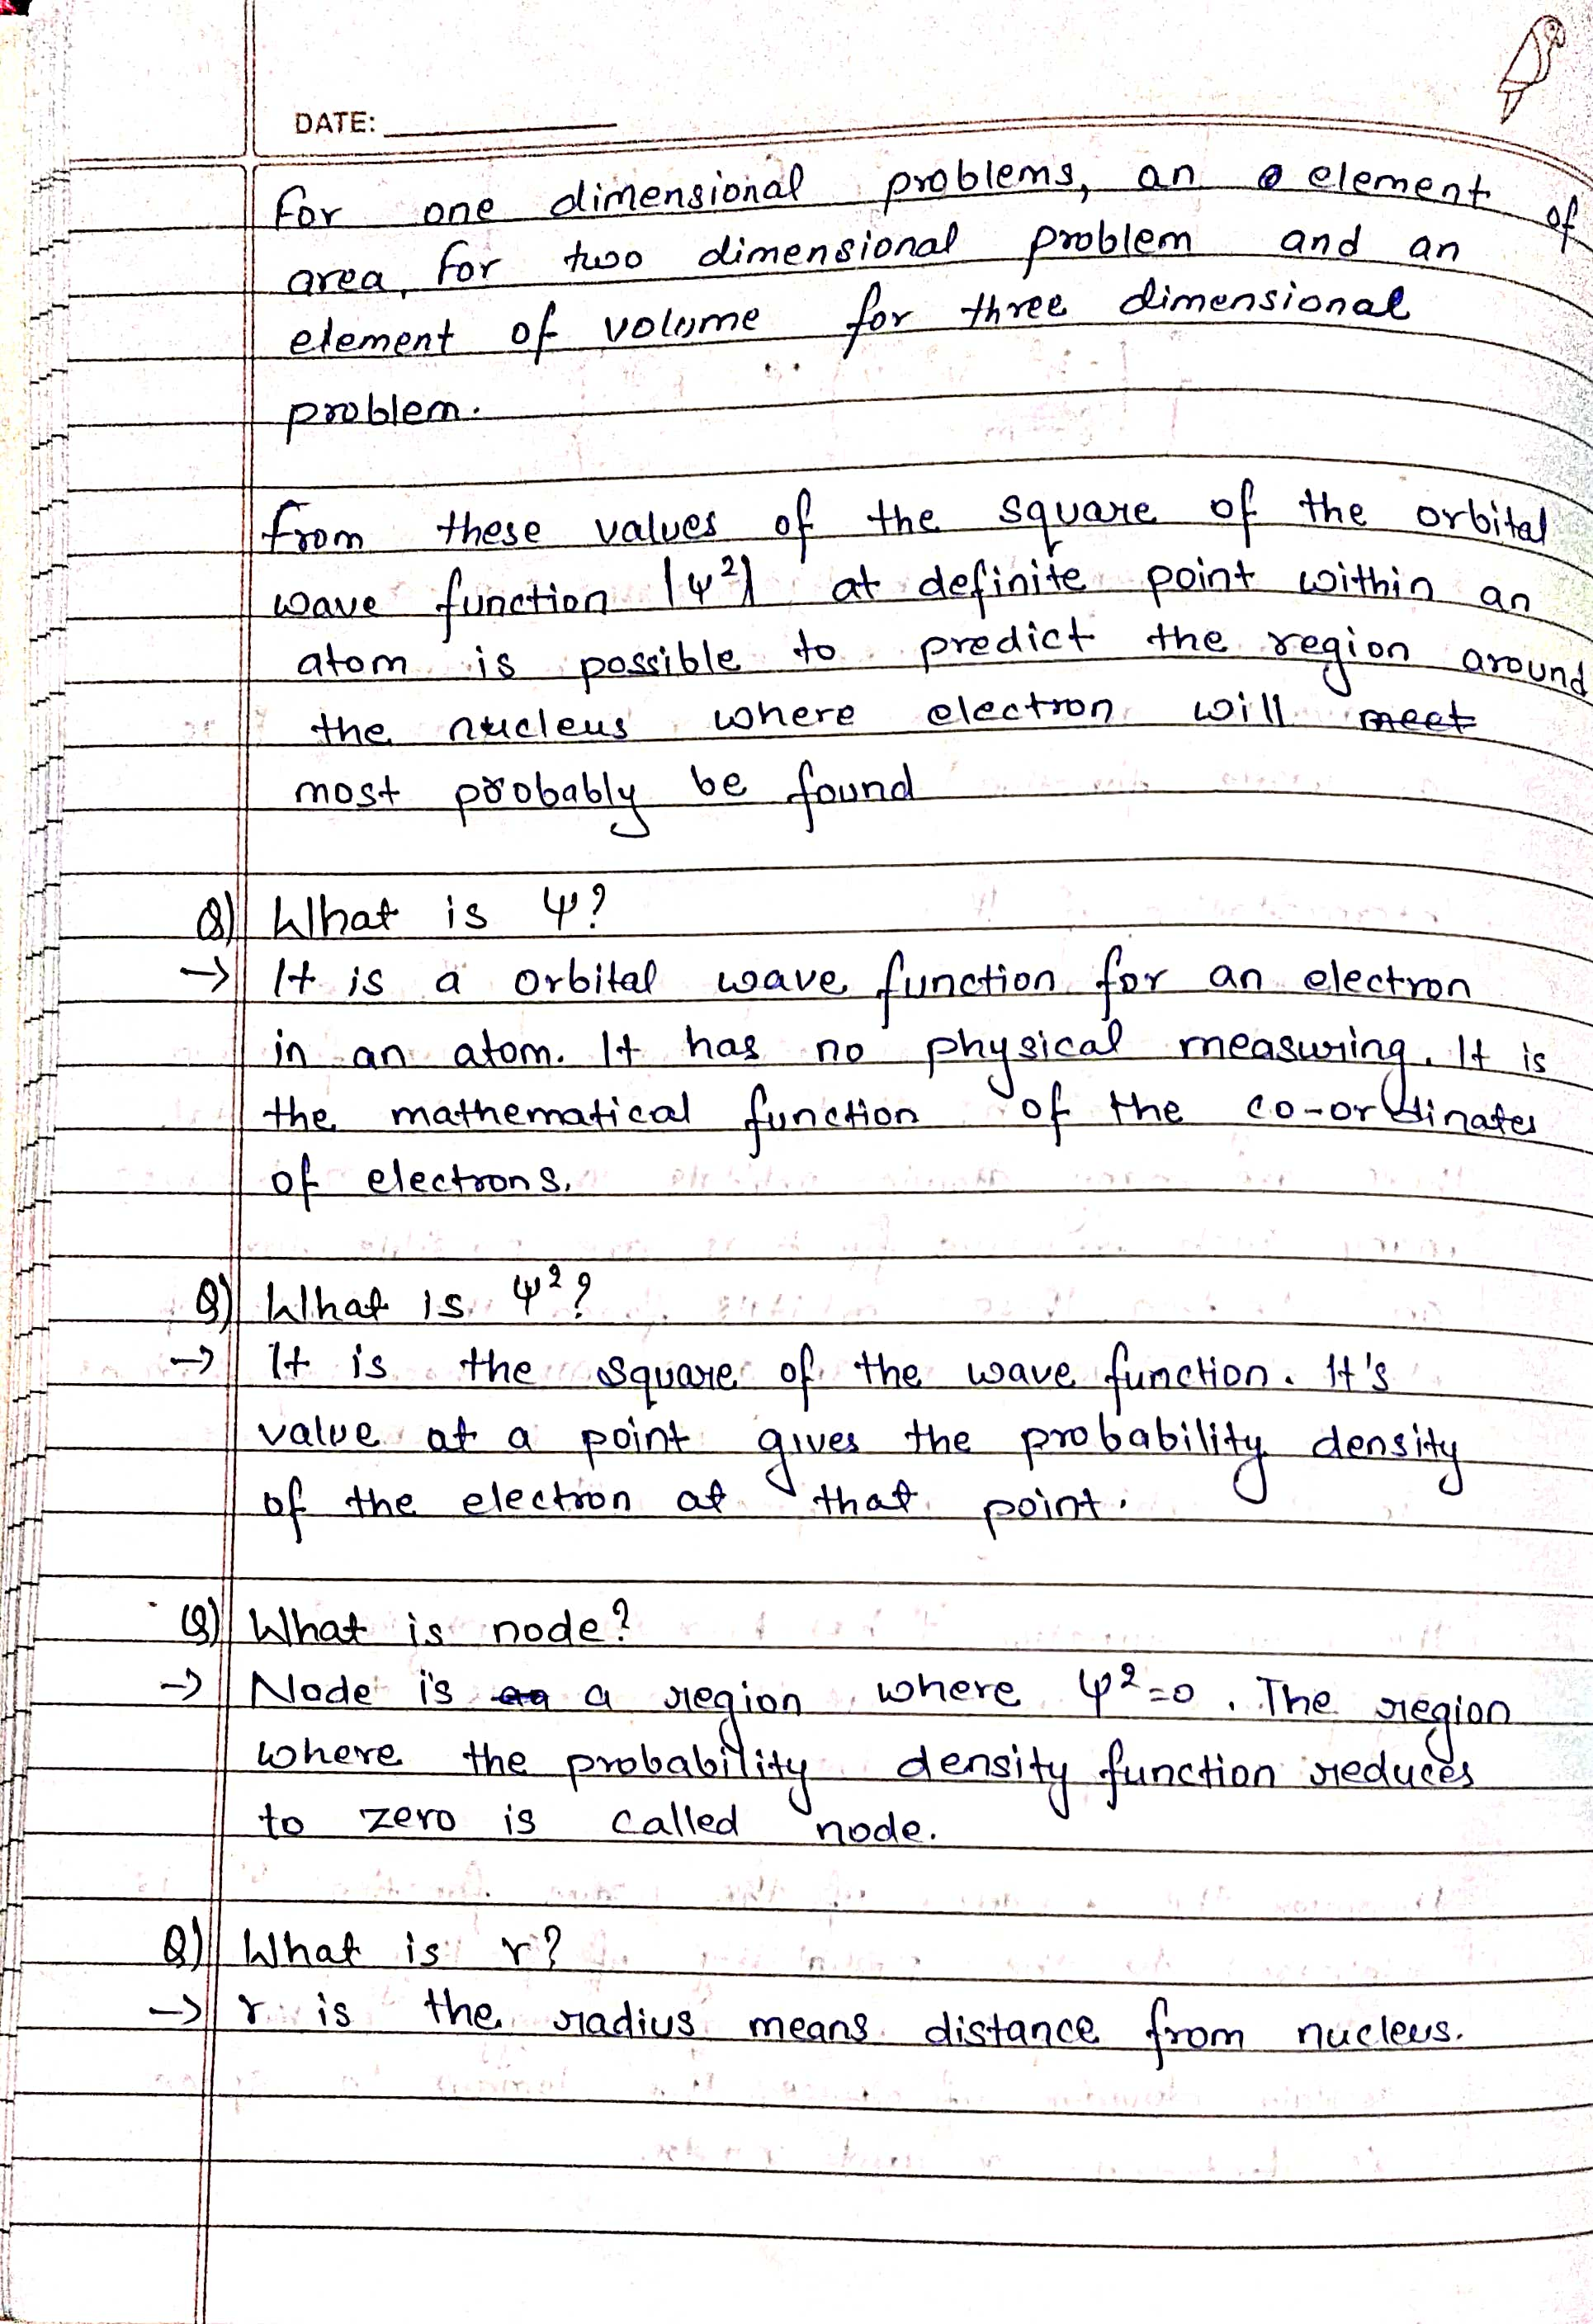 DATE:
for one dimensional problems, an element of
area, for two dimensional problem and an
element of volume for three dimensional
problem.
from these values of the square of the orbital
wave function |ψ²| at definite point within an
atom is possible to predict the region around
the nucleus where electron will meet
most probably be found
Q) What is ψ?
→ It is a orbital wave function for an electron
in an atom. It has no physical measuring. It is
the mathematical function of the co-ordinates
of electrons.
Q) What is ψ²?
→ It is the square of the wave function. It's
value at a point gives the probability density
of the electron at that point.
Q) What is node?
→ Node is a region where ψ²=0. The region
where the probability density function reduces
to zero is called node.
Q) What is r?
→ r is the radius means distance from nucleus.